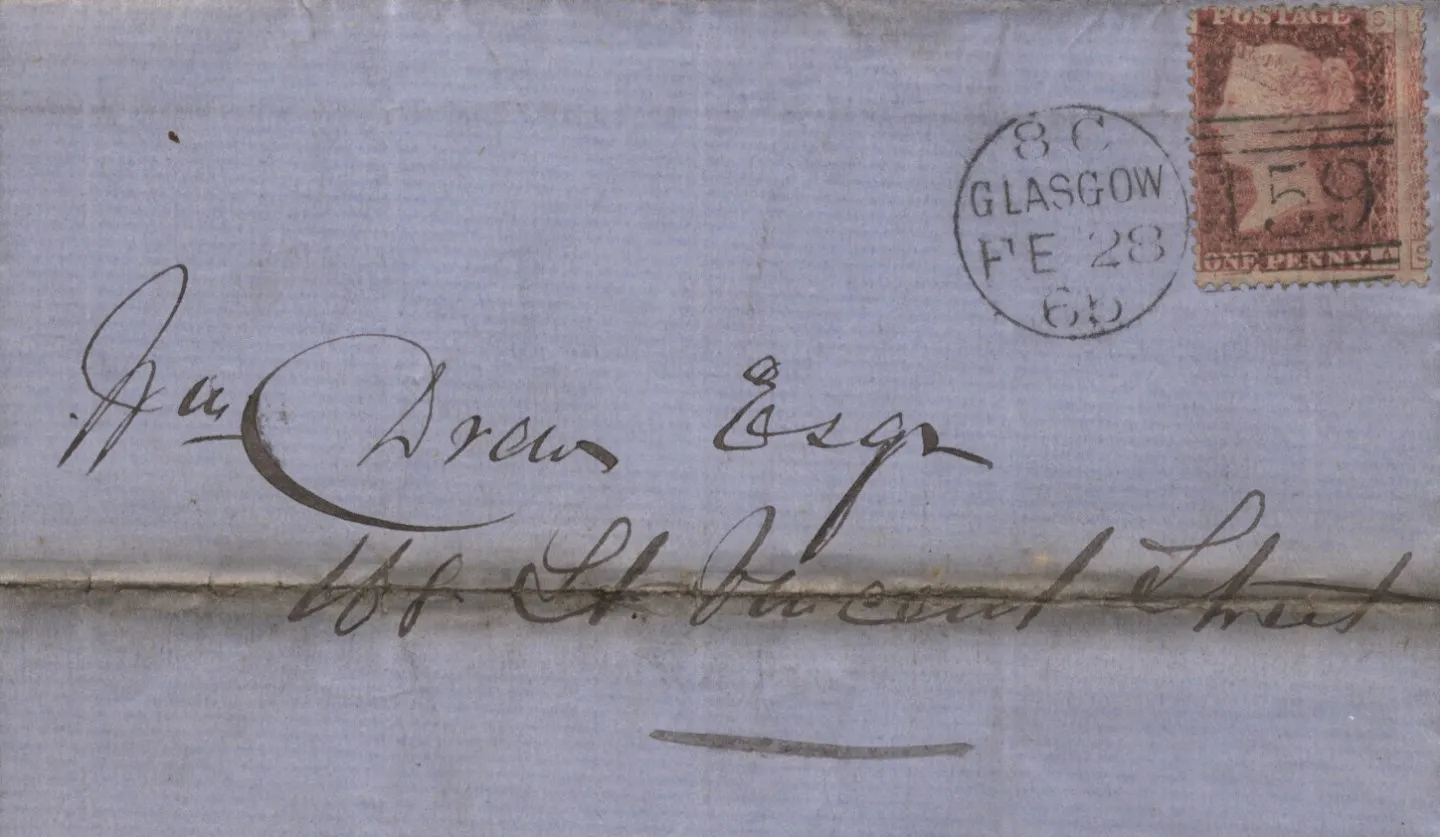 POSTAGE
8 C
GLASGOW
FE 28
159
ONE PENNY
Wm Drew Esqr
168 St. Vincent Street